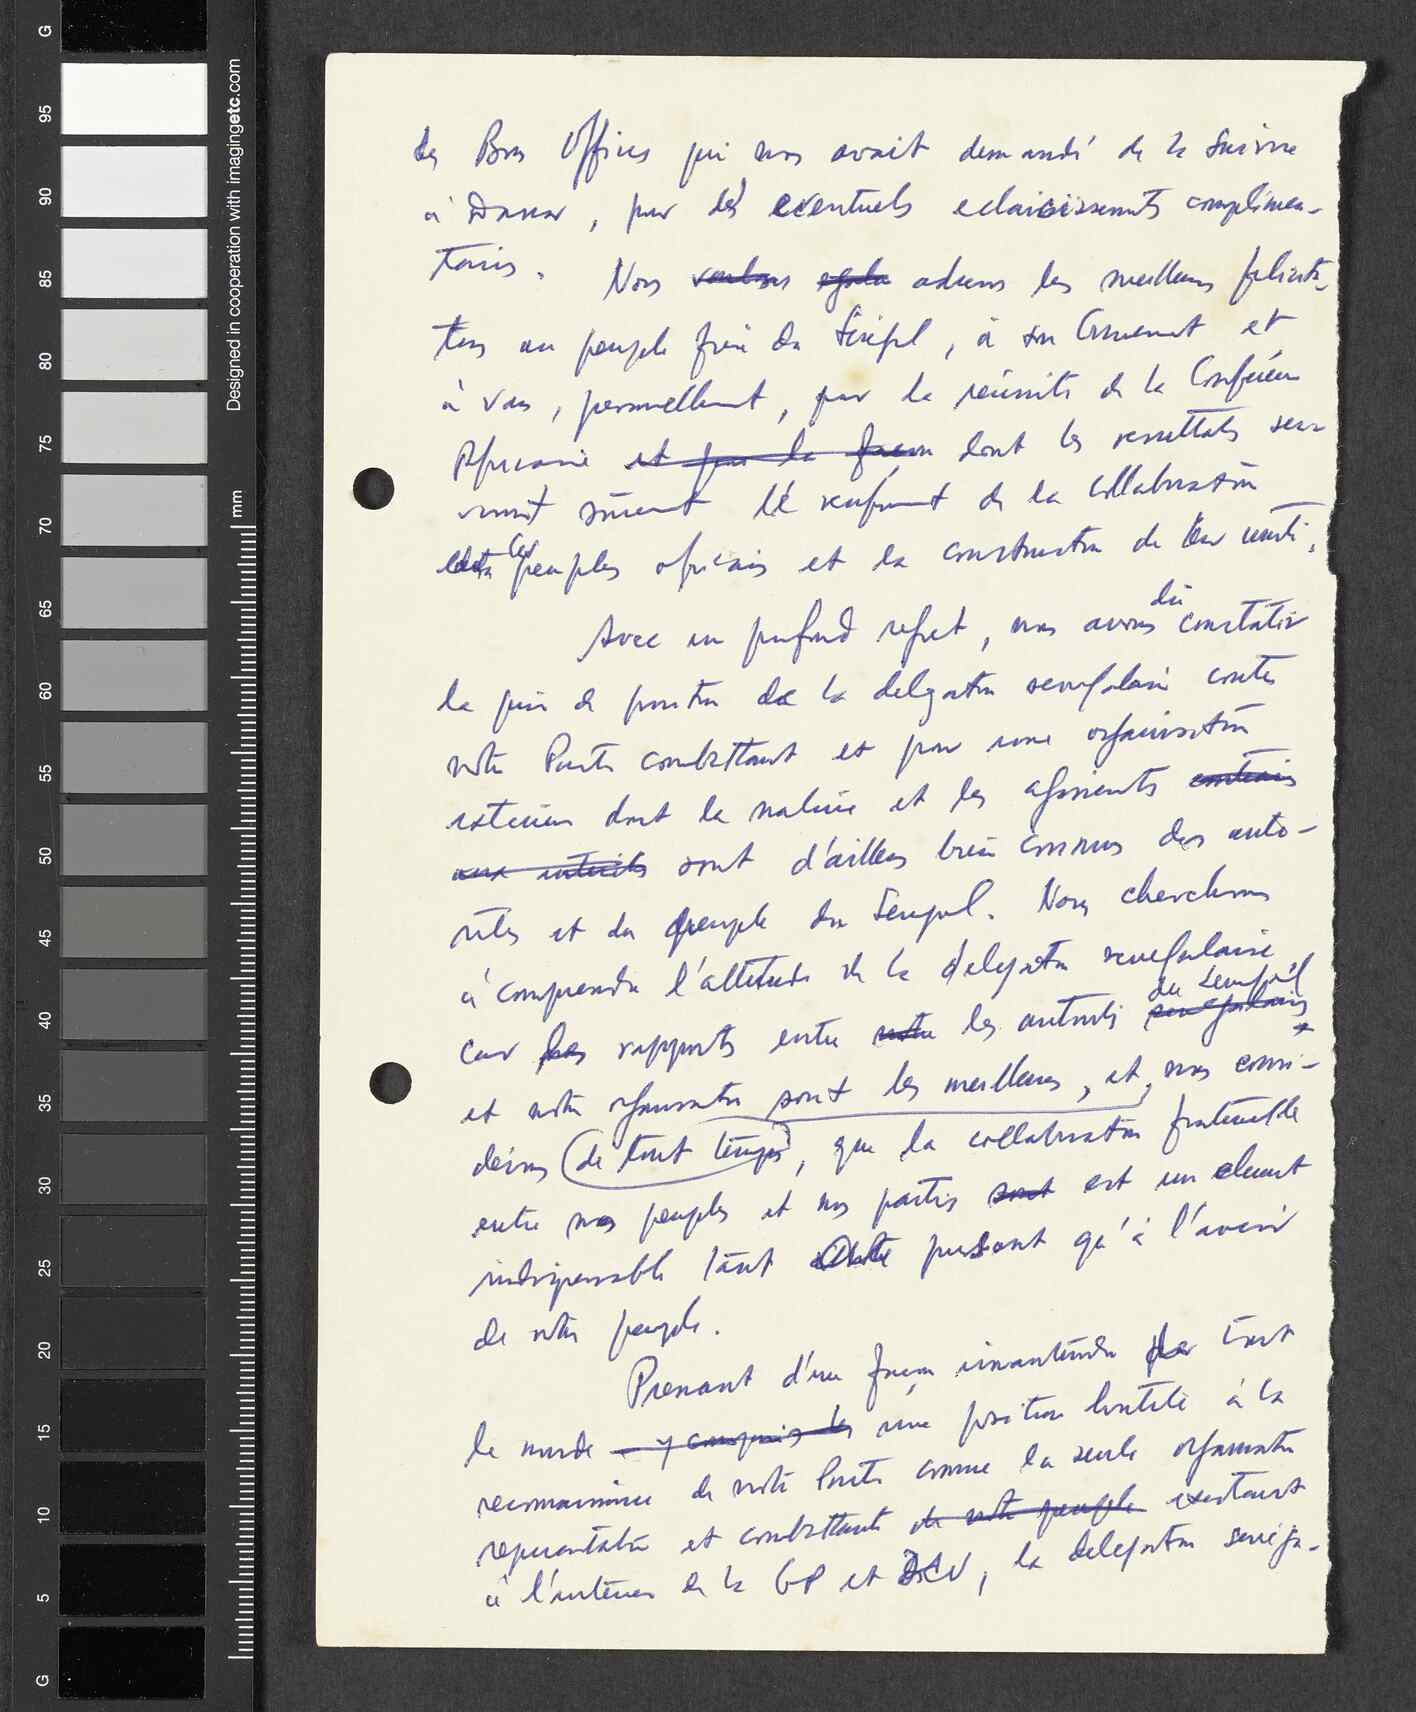 des Bons Offices qui nous avait demandé de la suivre
à Dakar, pour des eventuels eclaircissements complimen-
taires. Nous voulons adressons les meilleurs felicita-
tions au peuple frère du Sénégal, à son Gouvernement et
à vous, personnellement, pour la réussite de la Conférence
Africaine et pour la façon dont les resultats ser-
viront sûrement le renforcement de la collaboration
des peuples africains et la construction de leur unité.
Avec un profond regret, nous avons dû constater
la prise de position de la delegation senegalaise contre
notre Parti combattant et pour une organisation
exterieure dont la nature et les agissements contraires
aux intérêts sont d'ailleurs bien connus des auto-
rités et du peuple du Senegal. Nous cherchons
à comprendre l'attitude de la delegation senegalaise
car les rapports entre notre les autorités senegalaises du Senegal
et notre organisation sont les meilleurs, et nous consi-
dérons de tout temps, que la collaboration fraternelle
entre nos peuples et nos partis sont est un element
indispensable tant present qu'à l'avenir
de notre peuple.
Prenant d'une façon inattendue par tout
le monde - y compris les une position hostile à la
reconnaissance de notre Parti comme la seule organisation
representative et combattante de notre peuple existant
à l'interieur de la GP et, la delegation sénéga-